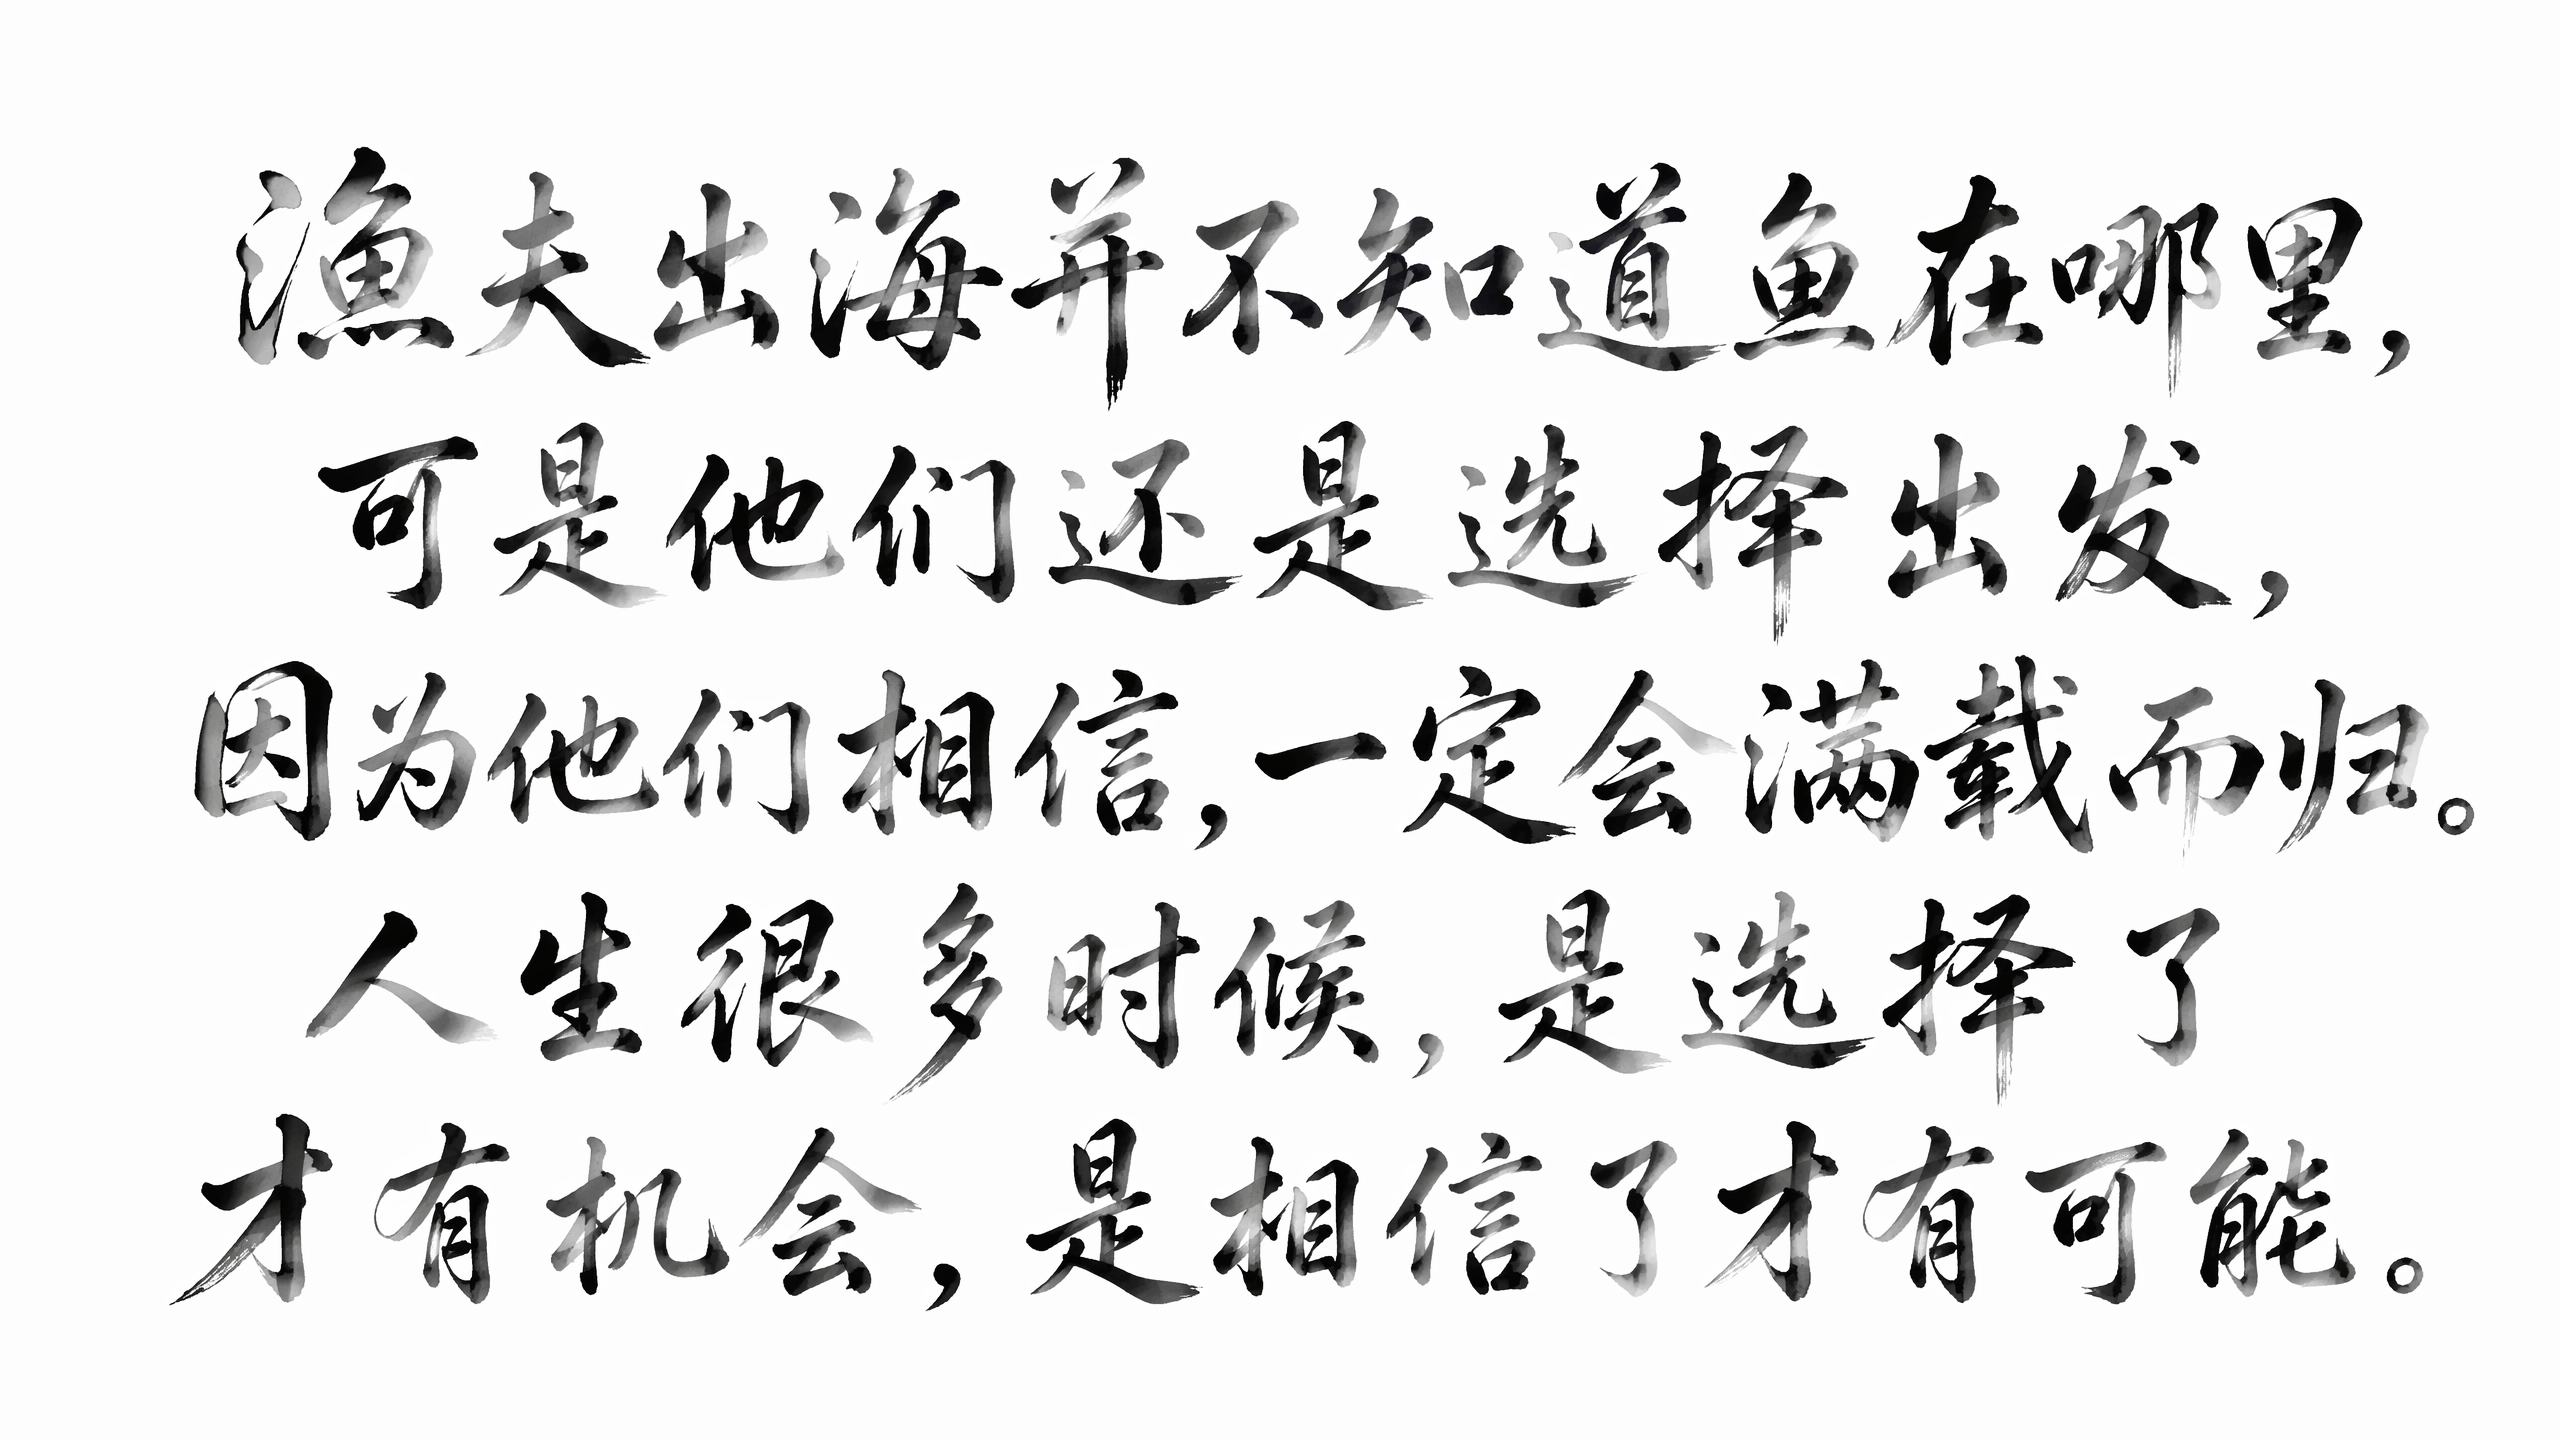 渔夫出海并不知道鱼在哪里，
可是他们还是选择出发，
因为他们相信，一定会满载而归。
人生很多时候，是选择了
才有机会，是相信了才有可能。